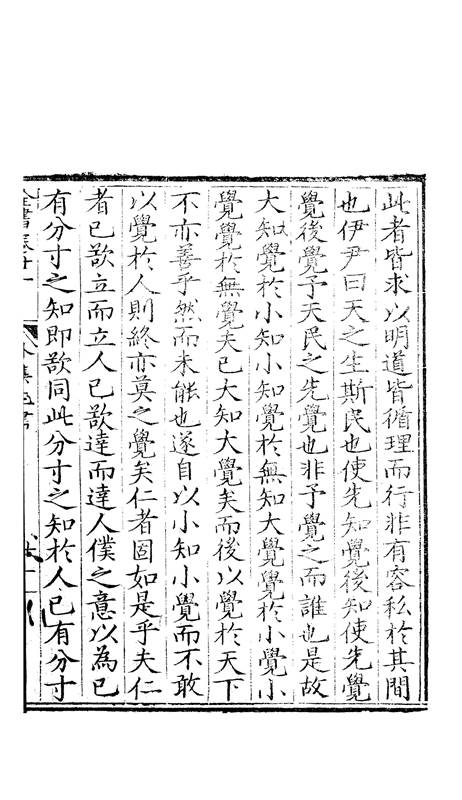 此者皆求以明道皆循理而行非有容私於其間
也伊尹曰天之生斯民也使先知覺後知使先覺
覺後覺予天民之先覺也非予覺之而誰也是故
大知覺於小知小知覺於無知大覺覺於小覺小
覺覺於無覺夫已大知大覺矣而後以覺於天下
不亦善乎然而未能也遂自以小知小覺而不敢
以覺於人則終亦莫之覺矣仁者固如是乎夫仁
者已欲立而立人已欲達而達人僕之意以為已
有分寸之知即欲同此分寸之知於人已有分寸